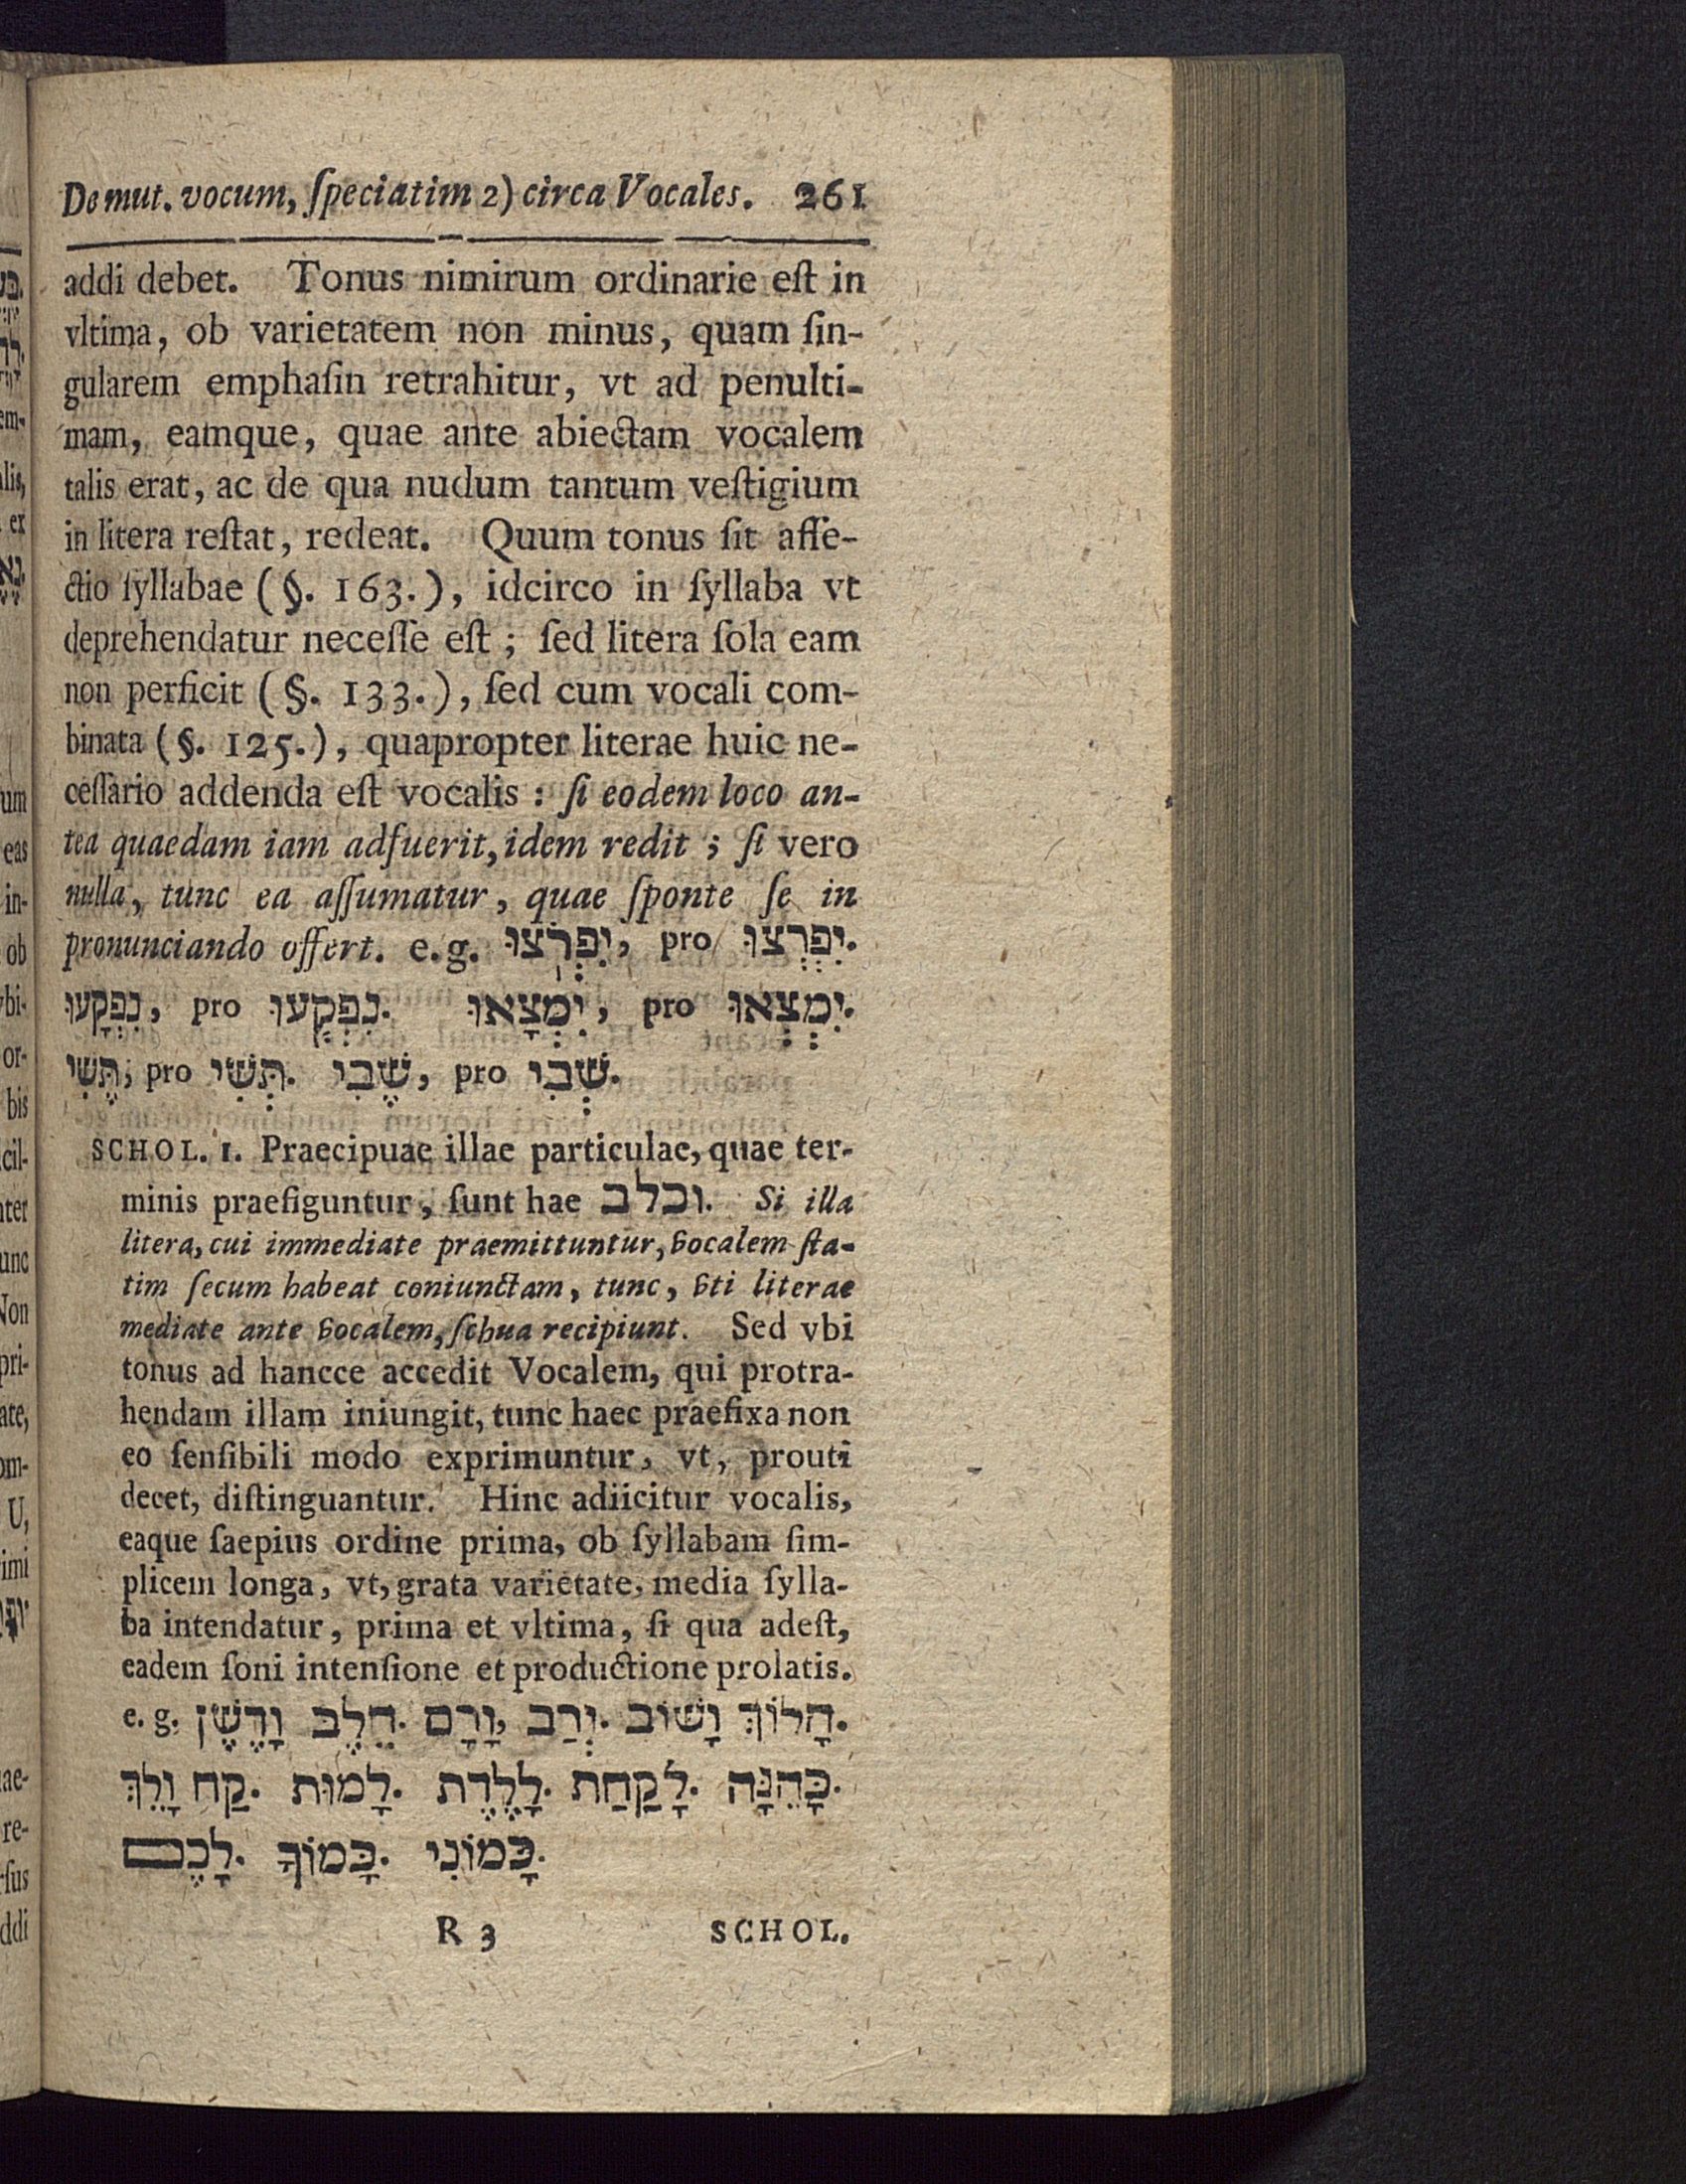 De mut. vocum, ſpeciatim 2) circa Vocales. 261
addi debet. Tonus nimirum ordinarie eſt in
vltima, ob varietatem non minus, quam ſin-
gularem emphaſin retrahitur, vt ad penulti-
mam, eamque, quae ante abiectam vocalem
talis erat, ac de qua nudum tantum veſtigium
in litera reſtat, redeat. Quum tonus ſit affe-
ctio ſyllabae (§. 163.), idcirco in ſyllaba vt
deprehendatur neceſſe eſt; ſed litera ſola eam
non perficit (§. 133.), ſed cum vocali com-
binata (§. 125.), quapropter literae huic ne-
ceſſario addenda eſt vocalis: ſi eodem loco an-
tea quaedam iam adfuerit, idem redit; ſi vero
nulla, tunc ea aſſumatur, quae ſponte ſe in
pronunciando offert. e. g. יִפְרֹצוּ, pro יִפְרְצוּ.
נִפְקָעוּ, pro נִפְקְעוּ. יִמְצָאוּ, pro יִמְצְאוּ.
תֶּשִׁי, pro תְּשִׁי. שֶׁבִי, pro שְׁבִי.
SCHOL. 1. Praecipuae illae particulae, quae ter-
minis praefiguntur, ſunt hae וכלב. Si illa
litera, cui immediate praemittuntur, vocalem ſta-
tim ſecum habeat coniunctam, tunc, vti literae
mediate ante vocalem, ſchua recipiunt. Sed vbi
tonus ad hancce accedit Vocalem, qui protra-
hendam illam iniungit, tunc haec praefixa non
eo ſenſibili modo exprimuntur, vt, prouti
decet, diſtinguantur. Hinc adiicitur vocalis,
eaque ſaepius ordine prima, ob ſyllabam ſim-
plicem longa, vt, grata varietate, media ſylla-
ba intendatur, prima et vltima, ſi qua adeſt,
eadem ſoni intenſione et productione prolatis.
e. g. הָלוֹךְ וָשׁוֹב. יְרַב, וָרָם. חֵלֶב וָדֶשֶׁן
כָּהֵנָּה. לָקַחַת. לָלֶדֶת. לָמוּת. קַח וָלֵךְ
כָּמוֹנִי. כָּמוֹךָ. לָכֶם
R 3 SCHOL.